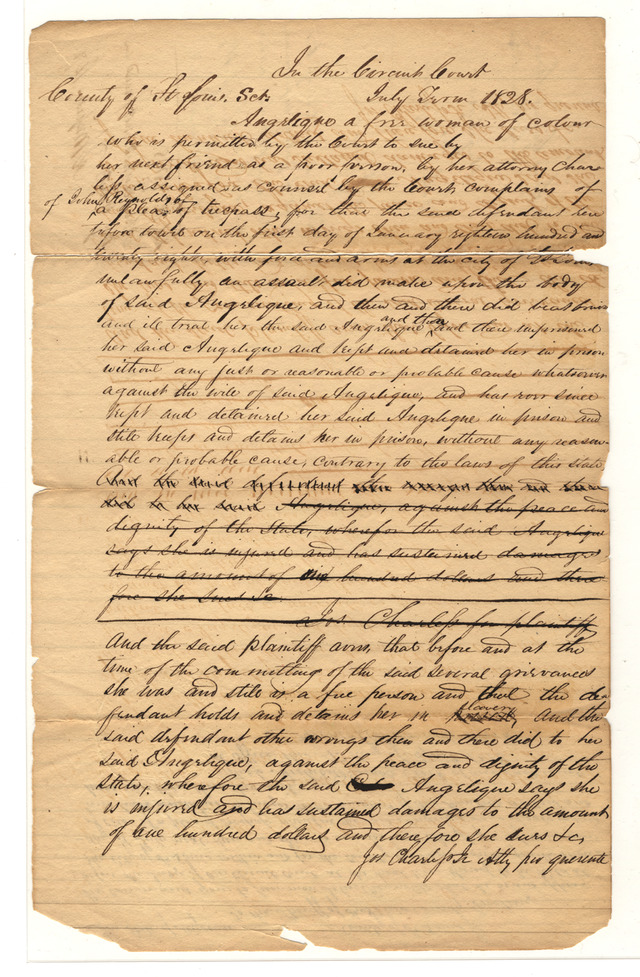 In the Circuit Court
County of St Louis. Sct. July Term 1828.
Angelique a free woman of colour
who is permitted by the Court to sue by
her next friend as a poor person, by her attorney Char
less assigned as counsel by the Court, complains of
of John Reynolds of
a plea of trespass, for that the said defendant here
tofore towit on the first day of January eighteen hundred and
twenty eight, with force and arms at the city of St Louis
unlawfully an assault did make upon the body
of said Angelique, and then and there did beat bruise
and ill treat her the said Angelique and then and there imprisoned
her said Angelique and kept and detained her in prison
without any just or reasonable or probable cause whatsoever
against the will of said Angelique, and has ever since
kept and detained her said Angelique in prison and
still keeps and detains her in prison, without any reason-
able or probable cause, contrary to the laws of this state
Angelique, against the peace and
dignity of the State, wherefor the said Angelique
says she is injured and has sustained damages
to the amount of one hundred dollars and there
fore she sues &c
Jos Charless for plaintiff
And the said plaintiff avers, that before and at the
time of the committing of the said several grievances
she was and still is a free person and that the de
fendant holds and detains her in slavery, And the
said defendant other wrongs then and there did to her
said Angelique, against the peace and dignity of the
State, wherefore the said Angelique says she
is injured and has sustained damages to the amount
of one hundred dollars and therefore she sues &c,
Jos Charless Jr Atty pro querente